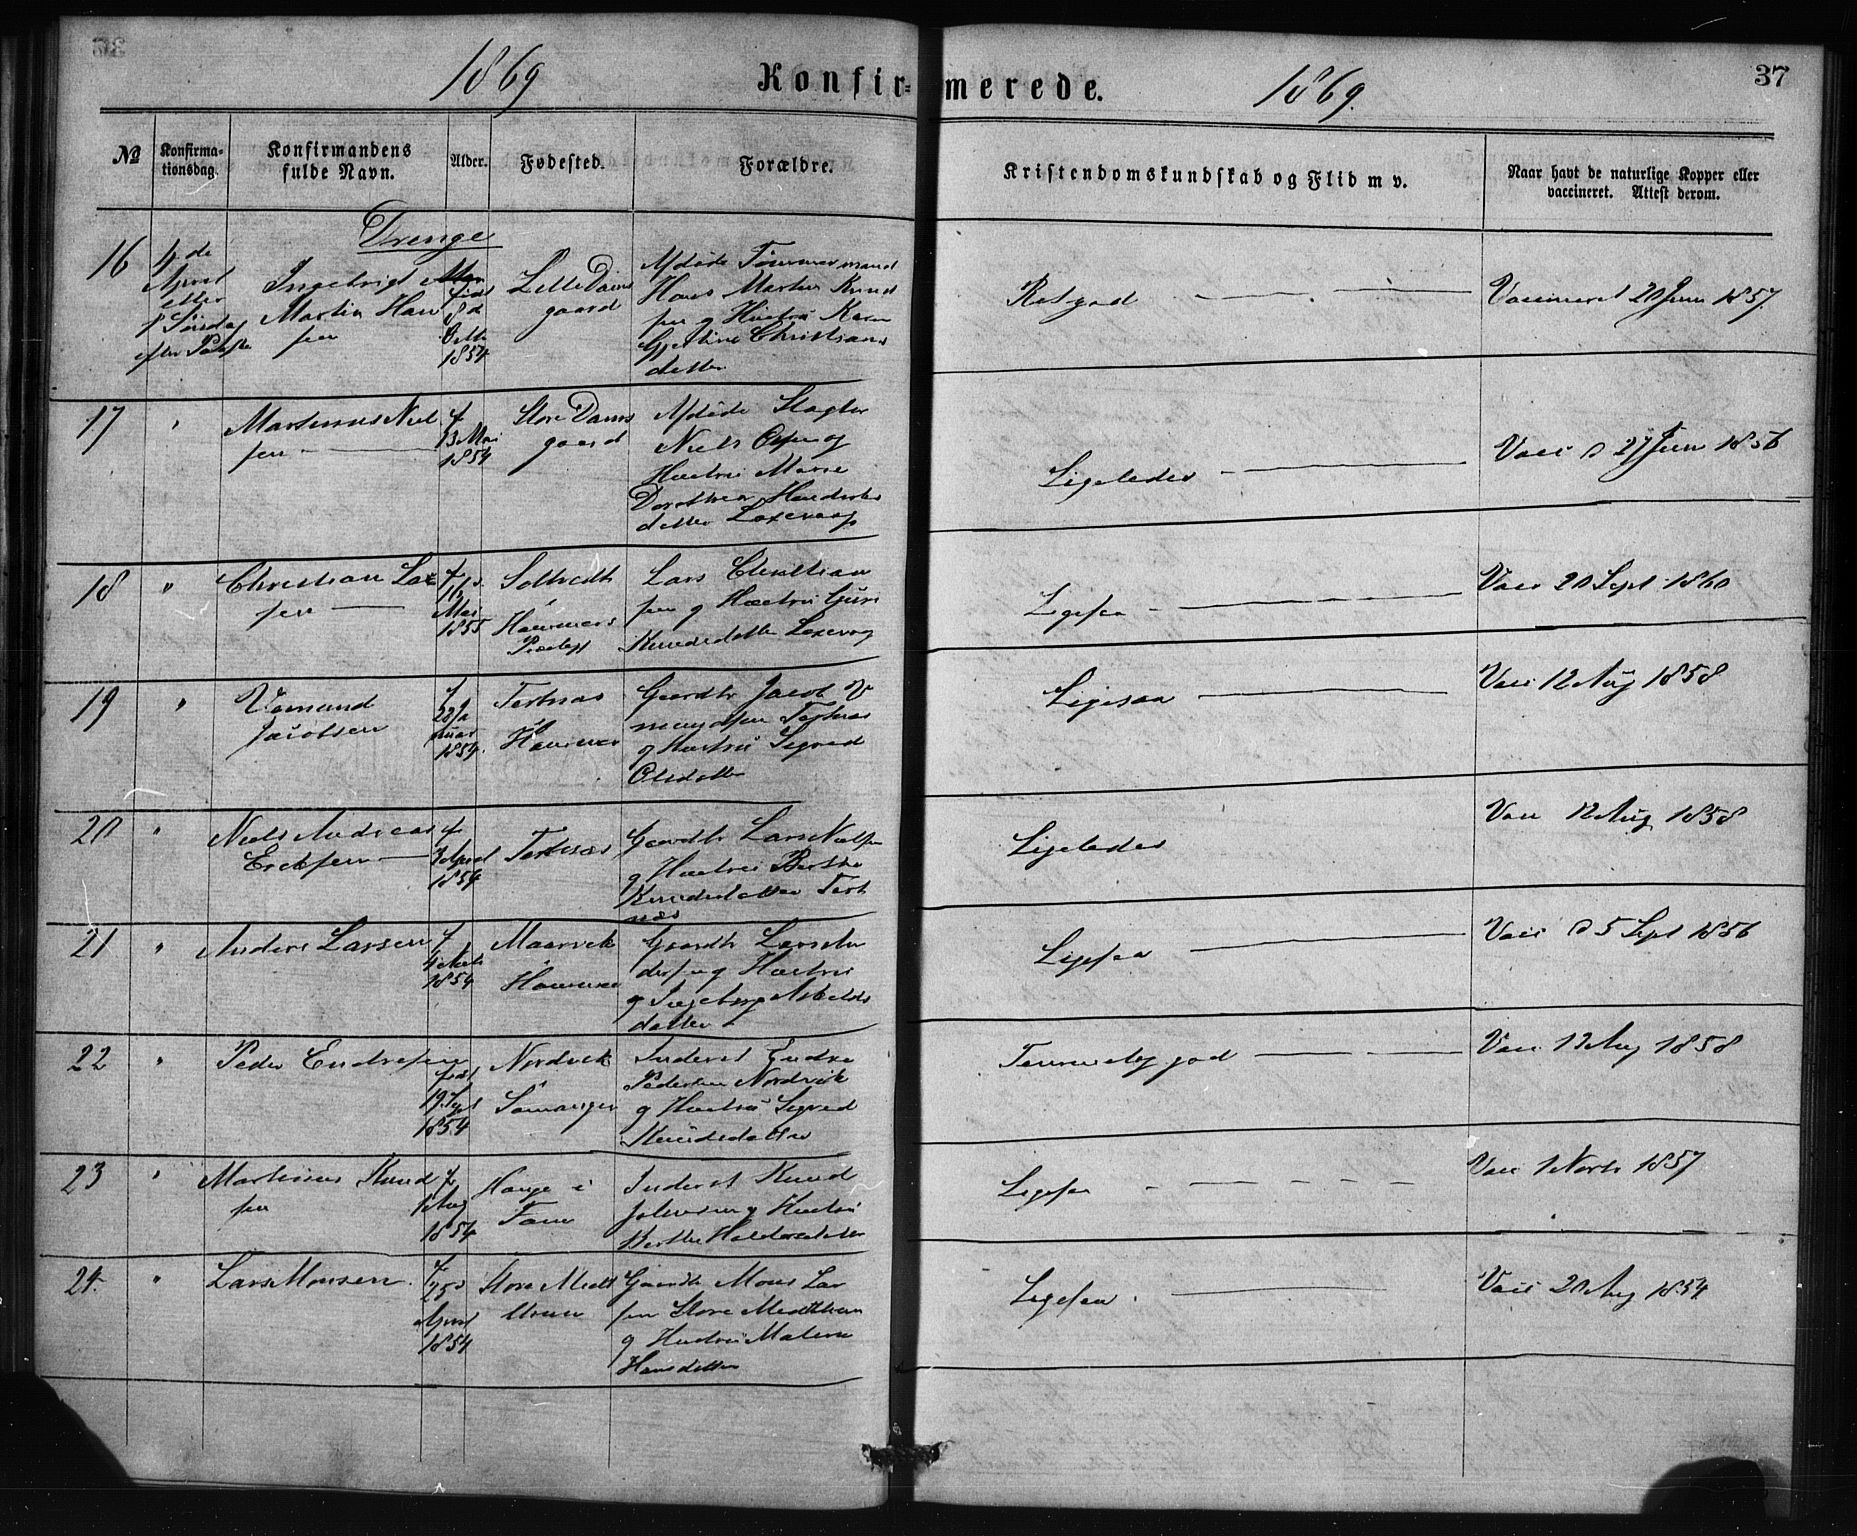 1869
Konfir=merede.
1869.
37
№
Konfirma-
tionsdag.
Konfirmandens
fulde Navn.
Alder.
Fødested.
Forældre.
Kristendomskundskab og Flid m v.
Naar havt de naturlige Kopper eller
vaccineret. Attest derom.
Drenge
16
4de
April
eller
1 Søndag
efter Paaske
Ingebrigt
Martin Han
sen
født
8d
1854
Lille Dams
gaard
Afdøde Tømmermand
Hans Martin Knud
sen og Hustru Karen
Christians
datter
Ret god
Vaccineret 20 Juni 1857.
17
"
Martinus Niel
sen
f
13 Mai
1854
Store Dams
gaard
Afdøde Slagter
Niels Olsen og
Hustru Marie
Dorothea
datter Laxevaag
Ligeledes
Vacc d 27 Juni 1856
18
"
Christian Lar
sen
f
16
Mai
1855
Soltvedt
i
Hammers
Præstegj
Lars Christian
sen og Hustru Guri
Knudsdatter Laxevaag
Ligesaa
Vacc 20 Sept 1860
19
"
Vemund
Jacobsen
f
28 Ja
nuar
1854.
Tertnæs
i
Hammer
Gaardbr Jacob Ve
mundsen Tertnæs
og Hustru Sigrid
Olsdatter
Ligesaa
Vacc 12 Aug 1858
20
"
Niels Andreas
Ericksen
f
April
1854
Tertnæs
Gaardbr Lars Nielsen
og Hustru Berthe
Knudsdatter Tert
næs
Ligeledes
Vacc 12 Aug 1858
21
"
Anders Larsen
f
4
1854
Maarvik
i
Hammer
Gaardbr Lars An
dersen og Hustru
og Ingeborg
datter
Ligesaa
Vacc d 5 Sept 1856
22
"
Peder Endresen
født
19 Sept
1854
Nordvik
i
Samanger
Inderst Endre
Pedersen Nordvik
og Hustru Sigrid
Knudsdatter
Temmelig god
Vacc 12 Aug 1858
23
"
Martinus Knud
sen
f
1 Aug
1854
Hauge i
Fane
Inderst Knud
Johnsen og Hustru
Berthe Haldorsdatter
Ligesaa
Vacc 1 1857
24.
"
Lars Monsen.
f
25d
April
1854
Store Midt
thun
Gaardbr Mons Lar
sen Store Midtthun
og Hustru Malene
Hansdatter
Ligesaa
Vacc 20 Aug 1854